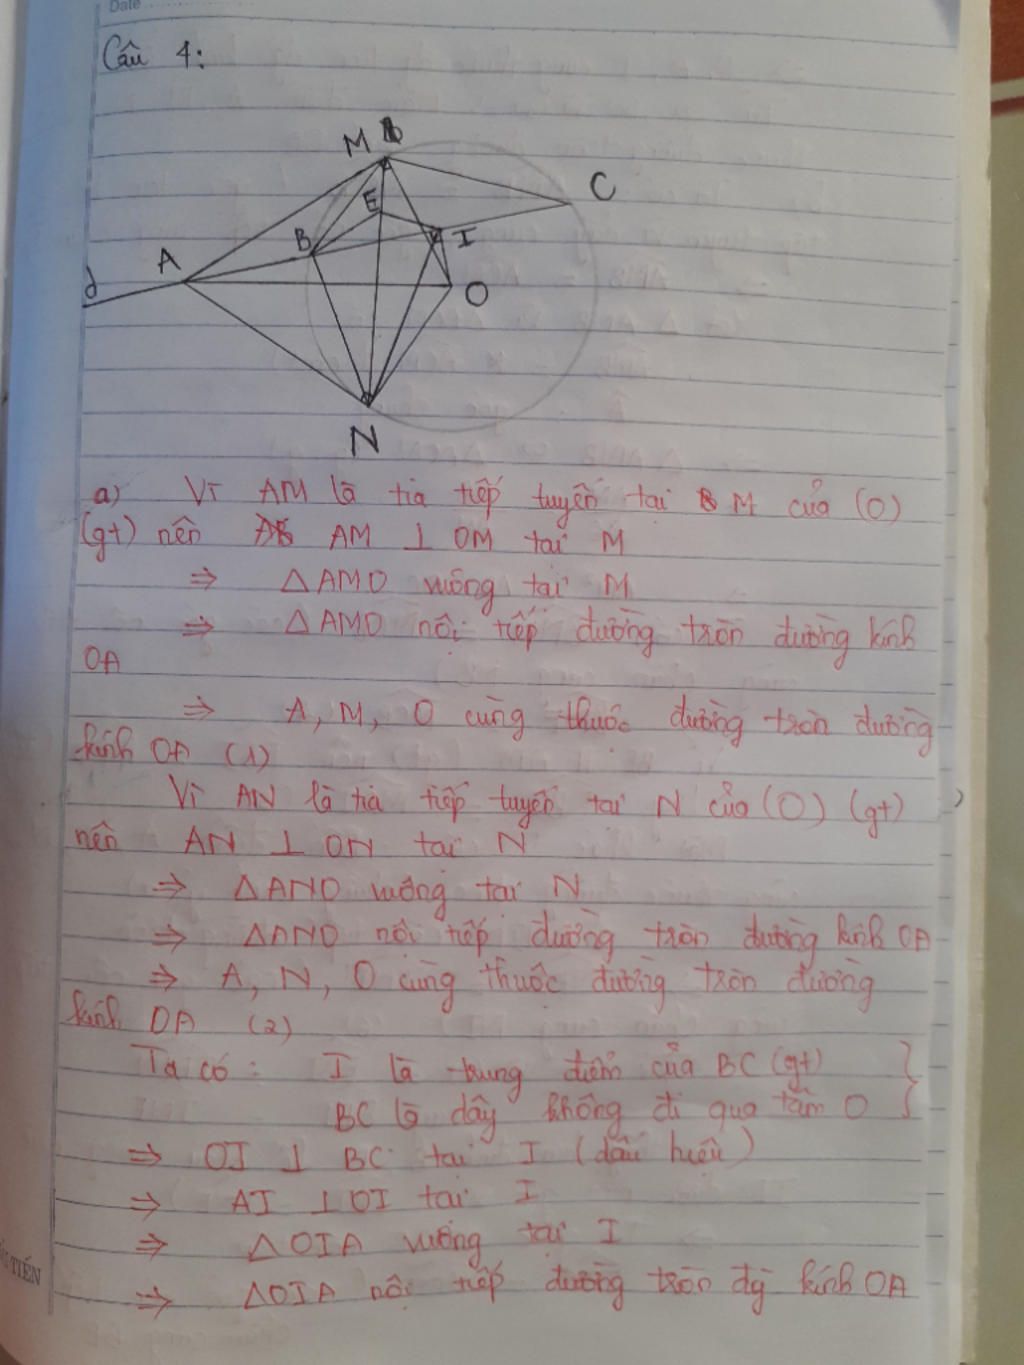 Date
Câu 4:
M
C
E
B
I
A
d
O
N
a) Vì AM là tia tiếp tuyến tại M của (O)
(gt) nên AM ⊥ OM tại M
⇒ △AMO vuông tại M
⇒ △AMO nội tiếp đường tròn đường kính
OA
⇒ A, M, O cùng thuộc đường tròn đường
kính OA (1)
Vì AN là tia tiếp tuyến tại N của (O) (gt)
nên AN ⊥ ON tại N
⇒ △ANO vuông tại N
⇒ △ANO nội tiếp đường tròn đường kính OA
⇒ A, N, O cùng thuộc đường tròn đường
kính OA (2)
Ta có: I là trung điểm của BC (gt)
BC là dây không đi qua tâm O
⇒ OI ⊥ BC tại I (dấu hiệu)
⇒ AI ⊥ OI tại I
⇒ △OIA vuông tại I
TIẾN
⇒ △OIA nội tiếp đường tròn đg kính OA